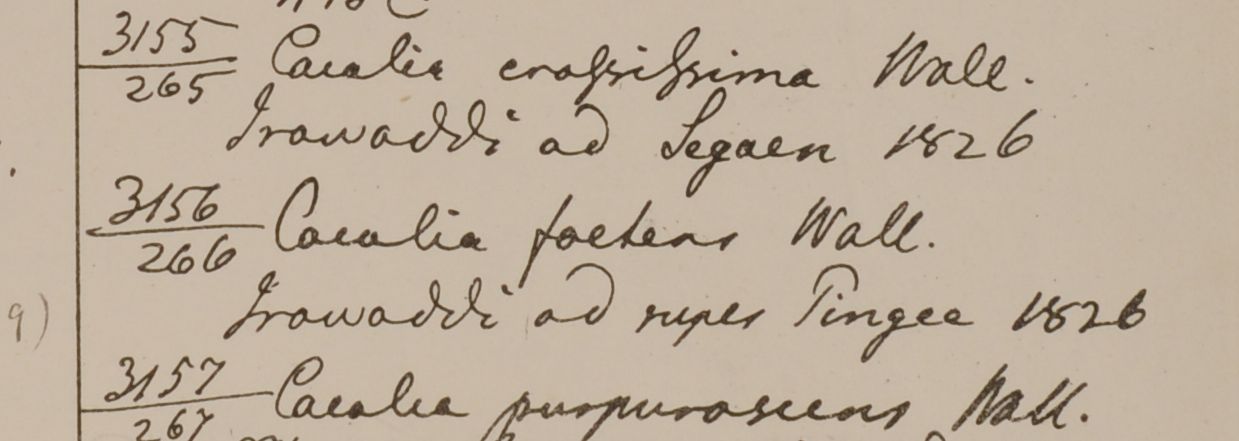 3155
265 Cacalia crassissima Wall.
Irawaddi ad Segaen 1826
3156
266 Cacalia foetens Wall.
Irawaddi ad rupes Pingee 1826
9)
3157
267 Cacalia purpurascens Wall.